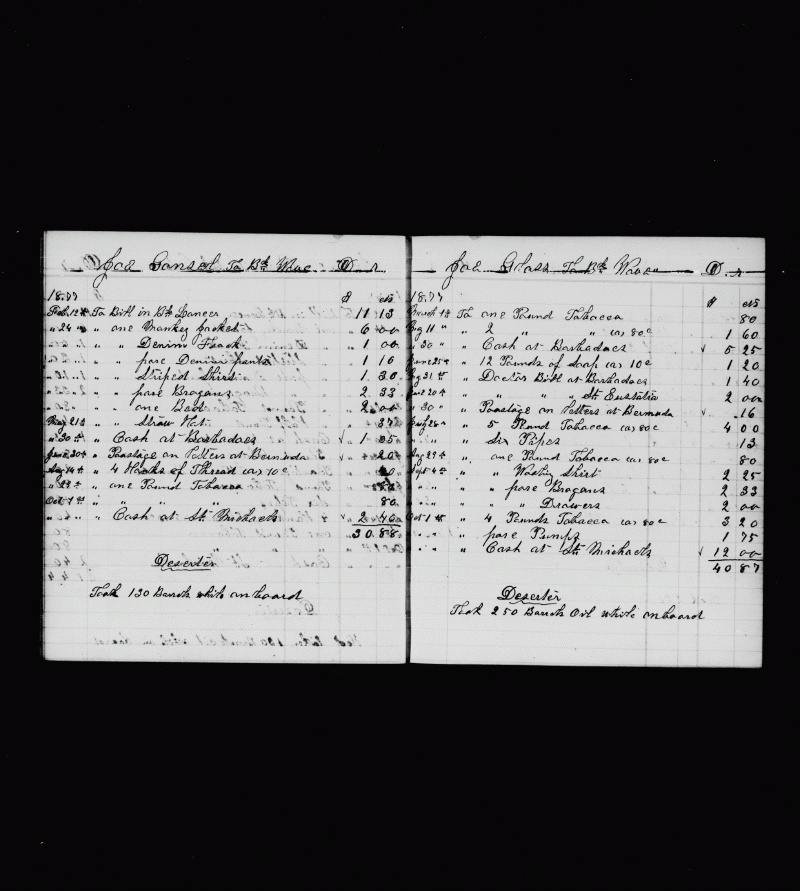 Joe Gonsol To Bk Wave Dr
1877 $ cts
Feb 12th To Bill in Bk Lancer 11 13
" 24 " " one Monkey jacket 6 00
" " " Denim Frock 1 00
" " " pare Denim pants 1 10
" " " Striped Shirt 1 30
" " " pare Brogans 2 33
" " " one Belt
" Straw Hat 37
" 30th " Cash at Barbadoes √ 1 05
June 30th " Poastage on Letters at Bermuda √ 20
Aug 14th " 4 Hanks of Thread @ 10c
" 29th " one Pound Tobacco 80
Oct 1st " " " " 80
" " " Cash at St. Michaels √ 2 40
30 88
Deserter
Took 130 Barrels while on board
Joe Glass To Bk Wave Dr
1877 $ cts
March 1st To one Pound Tobacco 80
11 " " 2 " " @ 80c 1 60
" 30 " " Cash at Barbadoes √ 5 25
" 12 Pounds of Soap @ 10c 1 20
31st " Doctor Bill at Barbadoes 1 40
June 20th " " " " St Eustatia 2 00
" 30 " " Poastage on Letters at Bermuda √ .16
" 5 Pound Tobacco @ 80c 4 00
" " " Six Pipes 13
Aug 29th " one Pound Tobacco @ 80c 80
Sept 4th " " Shirt 2 25
" " " " pare Brogans 2 33
" " " " " Drawers 2 00
Oct 1st " 4 Pounds Tobacco @ 80c 3 20
" " " pare Pumps 1 75
" " " Cash at St Michaels √ 12 00
40 87
Deserter
Took 250 Barrels Oil while on board